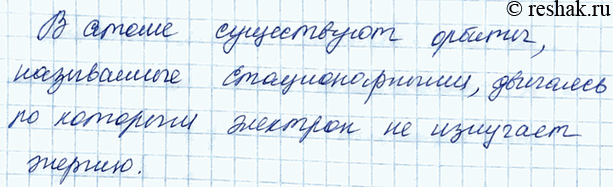 © reshak.ru
В атоме существуют орбиты,
называемые стационарными, двигаясь
по которым электрон не излучает
энергию.